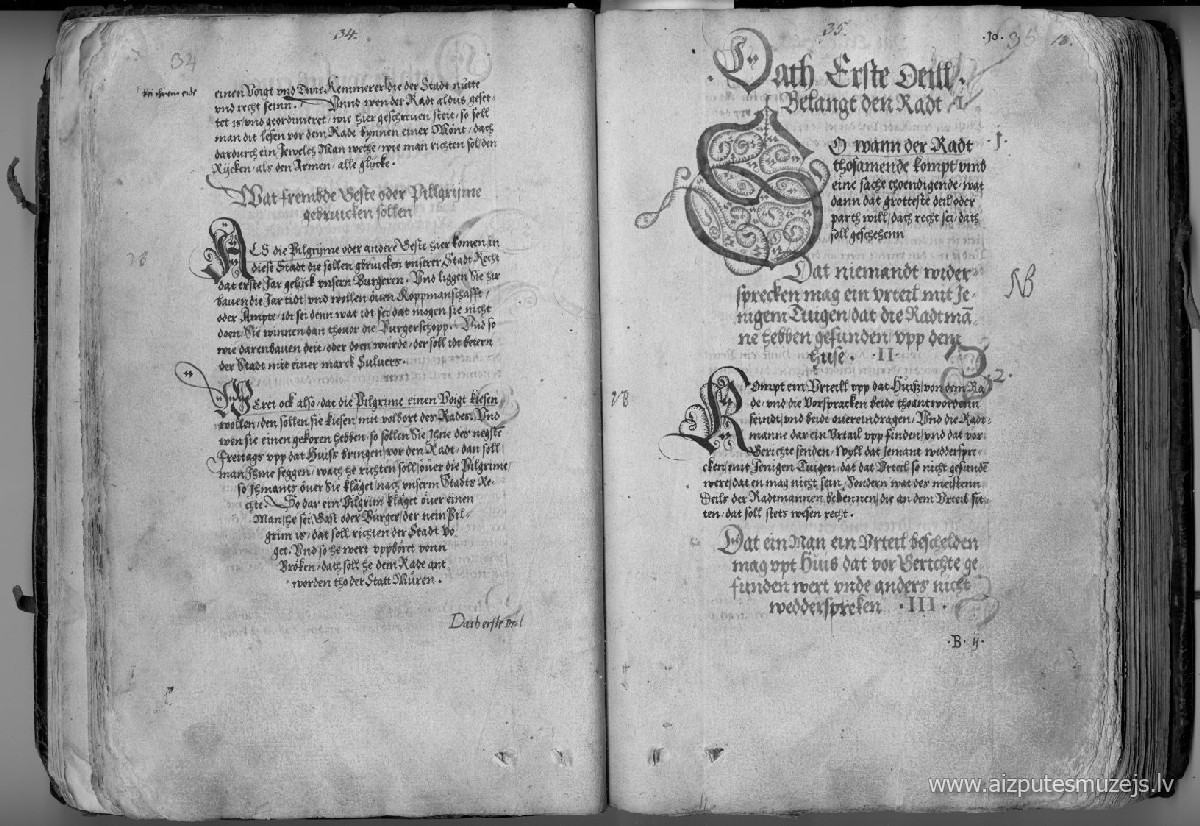 34.
34
bei ihrem eide
einen Voigt vnd Twe Kemmerer die der Stadt nütte
vnd recht seinn. Vnnd wen der Radt aldus geset-
tet is vnd geordinieret, wie hier geschreuen steit, so soll
man dit lesen vor dem Rade bynnen einer Mont, dath
dardurch ein Jeweleh Man wethe, wie man richten soll den
Rycken, als den Armen, alle glycke.
Wat frembde Geste oder Pillgryme
gebruicken sollen
ALS die Pilgryme oder andere Geste hier komen in
diese Stadt die sollen gbruicken vnserer Stadt Recht
dat erste Jar gelyck vnsern Burgeren. Vnd liggen Sie hir
bauen die Jar tidt vnd wollen öuen Koppmanschafft,
oder Ampte, idt sei denn wat idt sei, dat mogen sie nicht
doen, Sie winnen dan thouor die Burgerschopp. Vnd so
wie darenbauen deit, oder doen würde, der soll idt betern
der Stadt mit einer marck Suluers.
WErei ock also, dat die Pilgrime einen Voigt kiesen
wollen, den sollen sie kiesen mit volbort des Rades. Vnd
wen sie einen gekoren hebben, so sollen Sie Ihne des negste
Freitags vpp dat Huise bringen, vor den Radt, dan soll
man Ihme seggen, wath he richten soll, öuer die Pilgrime,
so Jhmants öuer Sie klaget, nach vnserm Stadts Re-
chte. So dar ein Pilgrim klaget öuer einen
Man, he sei, Gast oder Burger, der nein Pil-
grim is, dat soll richten der Stadt Vo
get. Vnd so he wert vppbört vonn
Bröken, dath soll he dem Rade ant
worden tho der Statt Müren.
Dath erste Deil
35.
.10. 35 10.
Dath Erste Deill.
Belangt den Radt .I.
1.
SO wann der Radt
thosamende kompt vnd
eine sache thoendigende, wat
dann dat grotteste deil oder
parth will, dath recht sei, dath
soll geschehenn
Dat niemandt wider-
sprecken mag ein vrteil mit Je-
nigem Tuigen dat die Radtmā-
ne hebben gefunden vpp dem
huse. .II.
NB
2.
KOmpt ein Vrteill vpp dat Huiß, von dem Ra-
de, vnd die Vorspracken beide thoantwordenn
seindt, vnd beide auereindragen. Vnd die Radt-
manne dar ein Vrtail vpp finden, vnd dat vor
Gerichte senden, Wyll dat Jemant widderspre-
cken, mit Jenigen Tuigen, dat dat Vrteil so nicht gefunden
were, dat en mag nicht sein, Sondern wat des meistenn
Deils der Radtmannen bekennen, die an dem Vrteil sit-
ten, dat soll stets wesen recht.
Dat ein Man ein Vrteil beschelden
mag vpt Huis dat vor Gerichte ge
funden wert vnde anders nicht
wedderspreken .III.
.B. ij.
www.aizputesmuzejs.lv